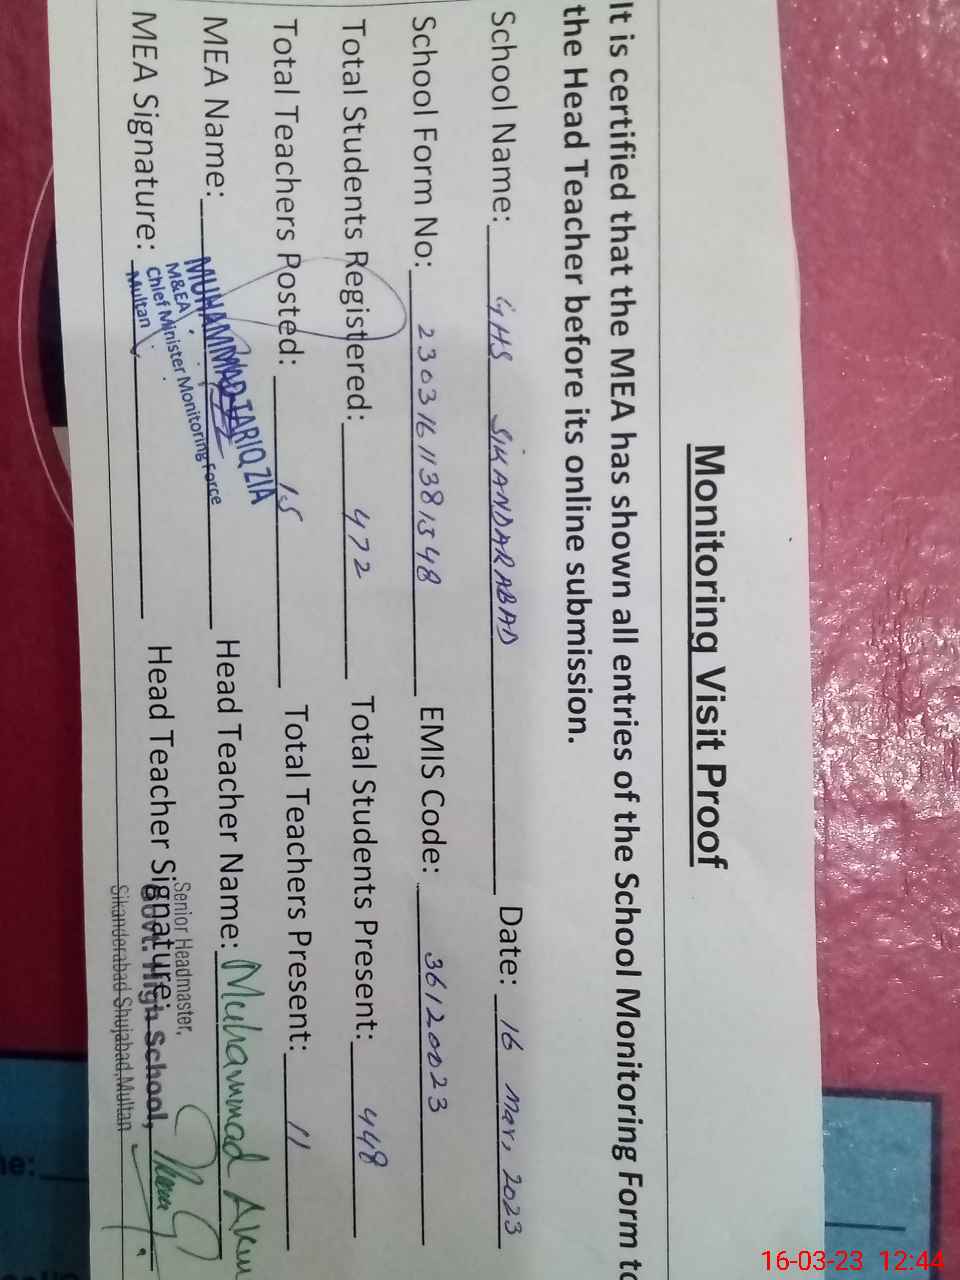 Monitoring Visit Proof
It is certified that the MEA has shown all entries of the School Monitoring Form to
the Head Teacher before its online submission.
School Name: GHS SIKANDARABAD Date: 16 Mar, 2023
School Form No: 23031611381548 EMIS Code: 36120023
Total Students Registered: 472 Total Students Present: 448
Total Teachers Posted: 15 Total Teachers Present: 11
MEA Name: MUHAMMAD TARIQ ZIA Head Teacher Name: Muhammad
M&EA
Chief Minister Monitoring Force
Multan
MEA Signature: Head Teacher Signature:
Senior Headmaster,
Govt. High School,
Sikanderabad Shujabad, Multan
16-03-23 12:44